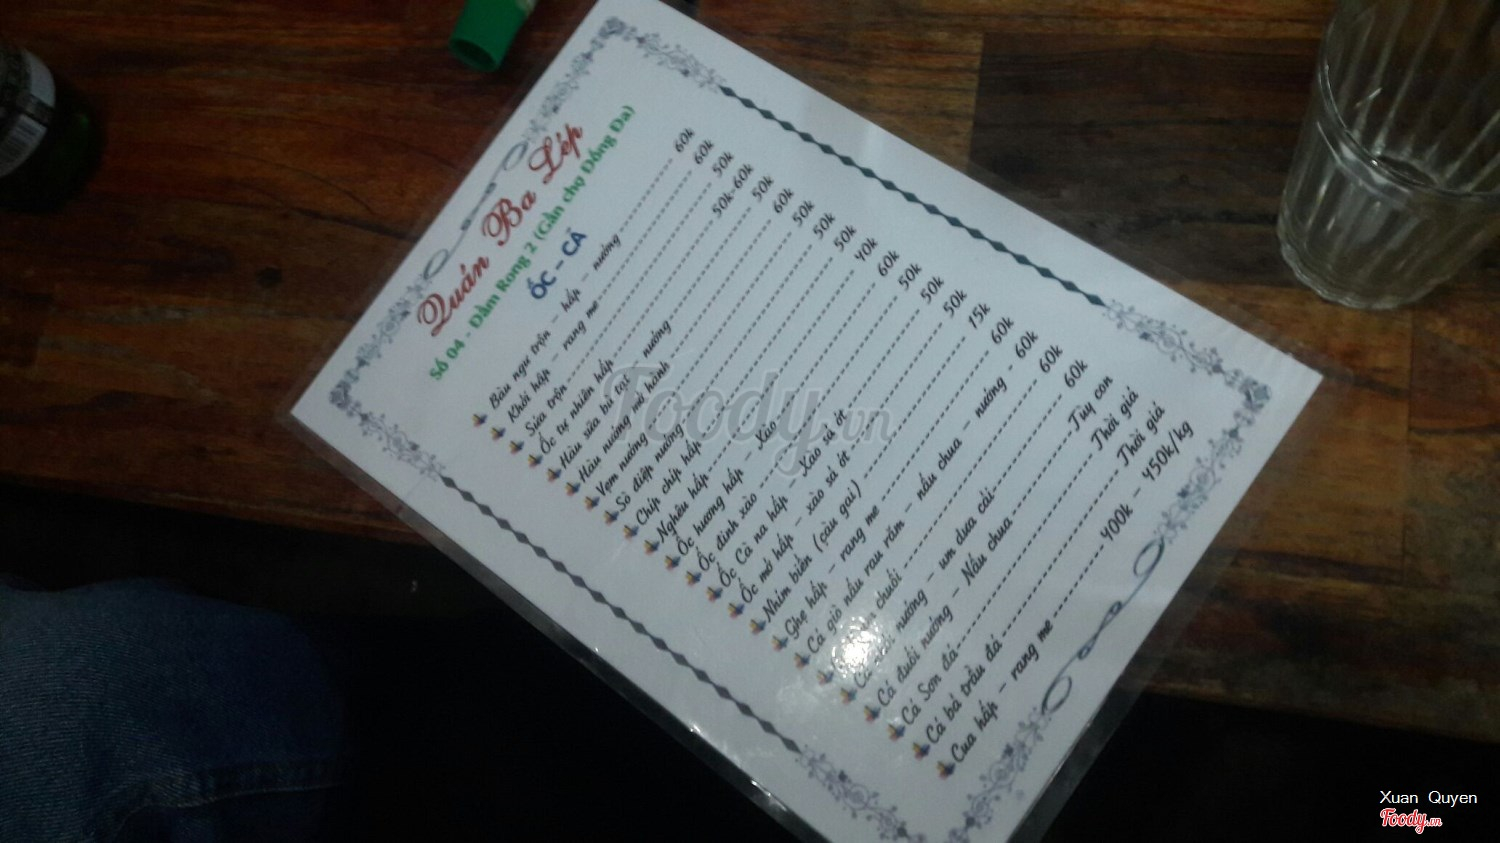 Quán Ba Lép
Số 04 - Đầm Rong 2 (Gần chợ Đống Đa)
ỐC - CÁ
Bàu ngư trộn - hấp - nướng 60k
Khởi hấp - rang me 60k
Sứa trộn 50k
Ốc tự nhiên hấp 50k-60k
Hàu sữa bỏ rọt 50k
Hàu nướng mỡ hành 60k
Vẹm nướng 50k
Sò điệp nướng 50k
Chíp chíp hấp 50k
Nghêu hấp 40k
Ốc hương hấp - Xào 60k
Ốc đinh xào 50k
Ốc Cà na hấp - Xào sả ớt 50k
Ốc mỡ hấp - xào sả ớt 50k
Nhím biển (cầu gai) 15k
Ghẹ hấp - rang me 60k
Cá giò nấu rau răm - nấu chua - nướng 60k
chuối 60k
nướng - um dưa cải 60k
Cá đuối nướng - Nấu chua Tùy con
Cá Sơn đá Thời giá
Cá bả trầu đá Thời giá
Cua hấp - rang me 400k - 450k/kg
Foody.vn
Xuan Quyen
Foody.vn